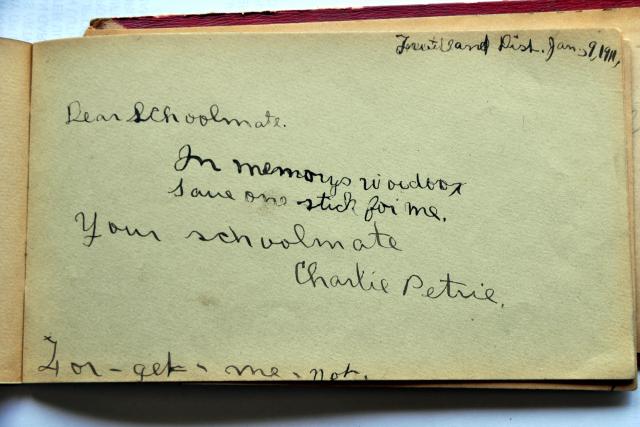 Fruitland Dist. Jan. 9, 1911,
Dear Schoolmate.
In memorys woodbox
save one stick for me.
Your schoolmate
Charlie Petrie.
For-get-me-not.